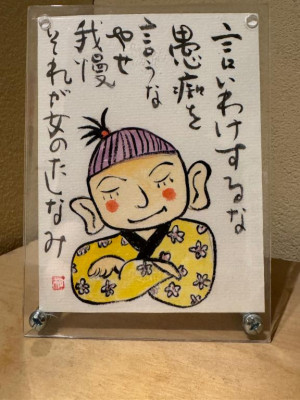 言いわけするな
愚痴を
言うな
やせ
我慢
それが女のたしなみ